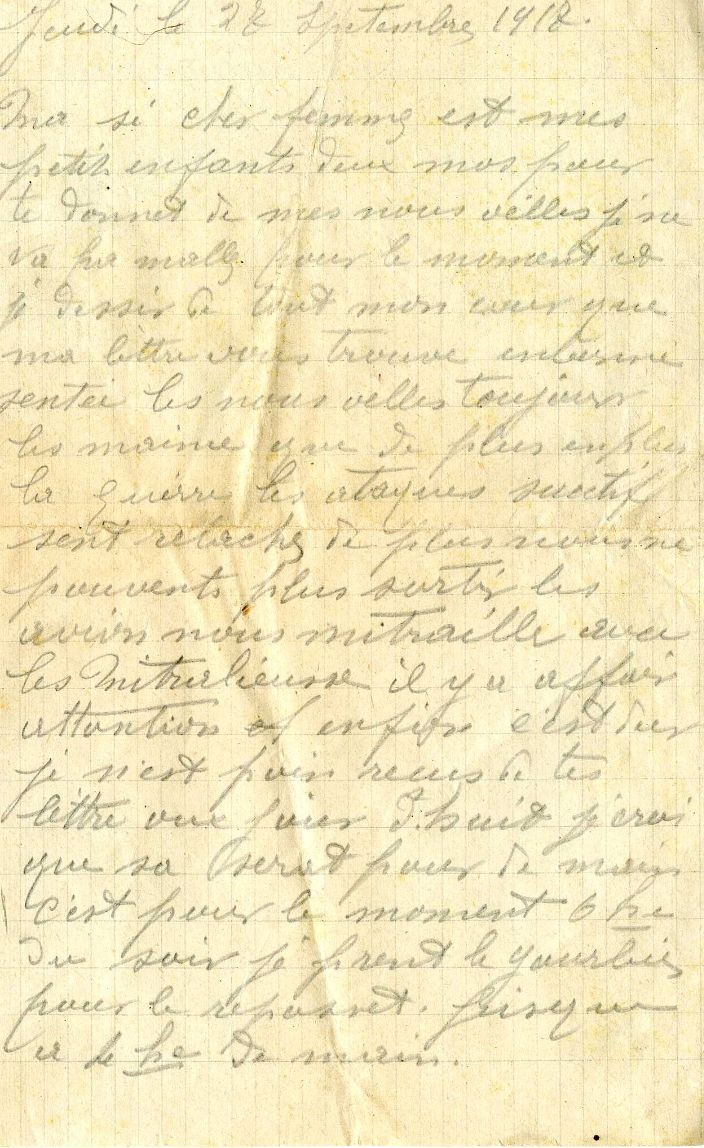 Jeudi le 27 Septembre 1917.
Ma si cher femme est mes
petit enfants deux mos pour
te donnet de mes nous vélles je ne
va pa malle pour le moment et
je dessir de tout mon cour que
ma lettre vous trouve enbonne
sentée les nous velles toujour
les maime que de plus enplus
la guérre les ataques suctif
sent relache de plus nous ne
pouvents plus sortir les
avion nous mitraille avec
les Mitralieusse il y a affair
attantion et enfin c'est dur
je n'est poin recus de tes
léttre oue jour d'huit je croi
que sa serat pour de main
c'est pour le moment 6 hre
du soir je prent le gourbie
pour le reposset. Jusque
a hre de main.